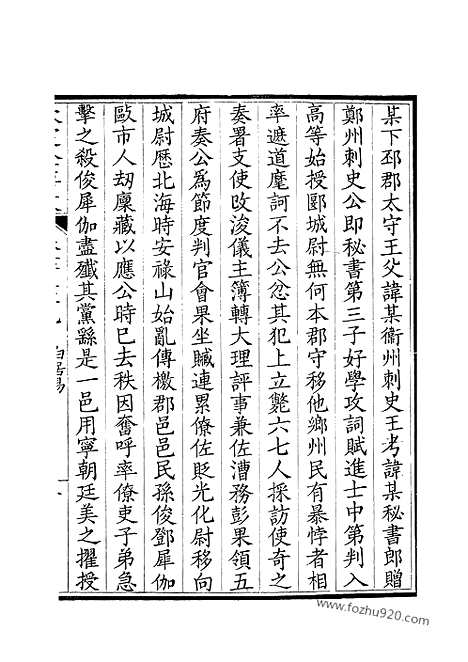 某下邳郡太守王父諱某衞州刺史王考諱某秘書郎贈
鄭州刺史公即秘書第三子好學攻詞賦進士中第判入
高等始授郾城尉無何本郡守移他鄉州民有暴悖者相
率遮道麾訶不去公忿其犯上立斃六七人採訪使奇之
奏署支使攺浚儀主簿轉大理評事兼佐漕務彭果領五
府奏公爲節度判官會果坐贓連累僚佐貶光化尉移向
城尉歷北海時安祿山始亂傳檄郡邑邑民孫俊鄧犀伽
敺市人刼廩藏以應公時已去秩因奮呼率僚吏子弟急
擊之殺俊犀伽盡殲其黨繇是一邑用寧朝廷美之擢授
白居易
www.fozhu920.com